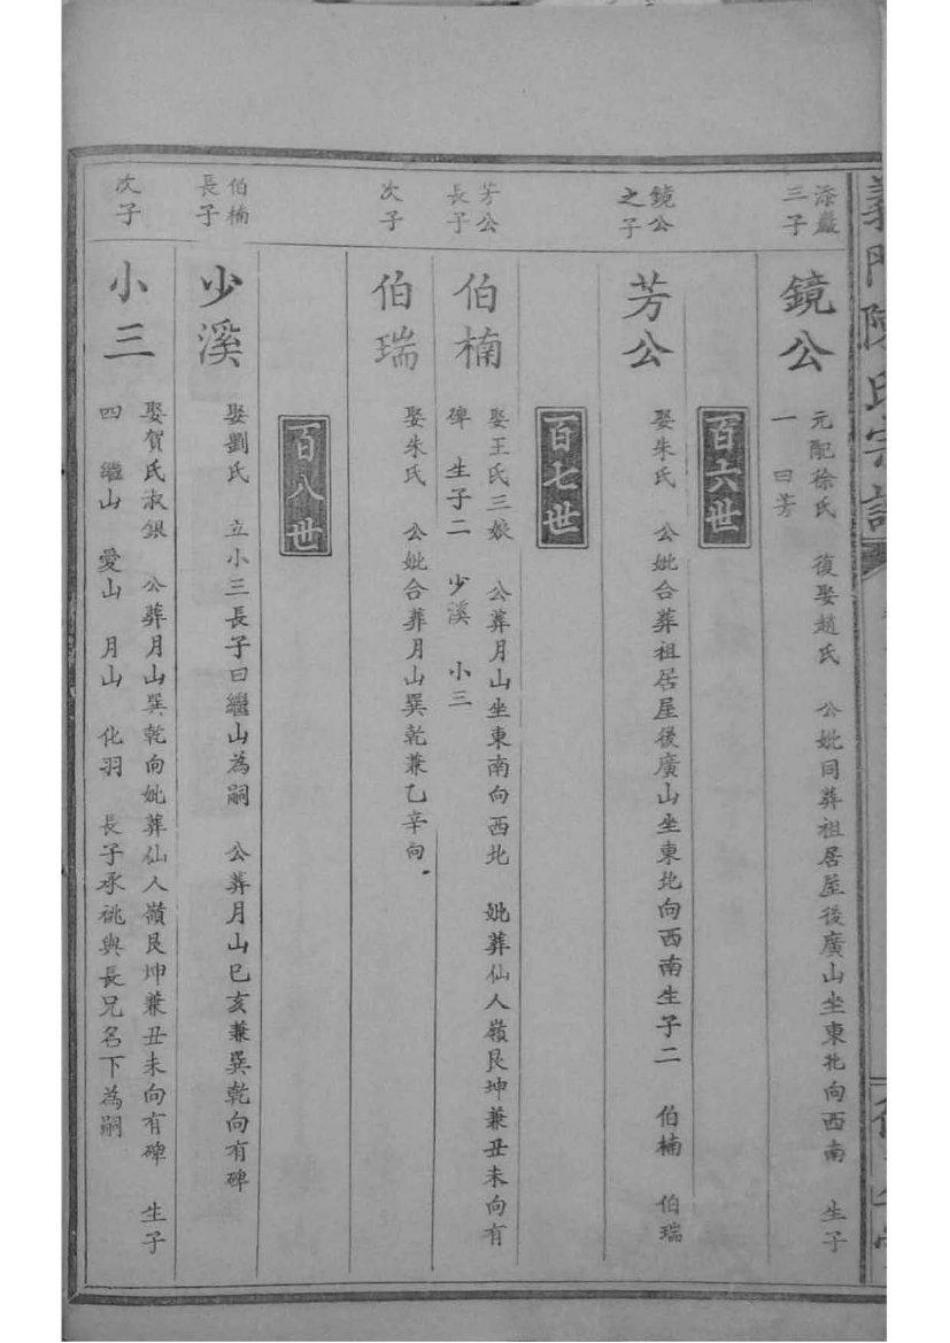 義門陳氏宗譜
添嚴
三子
鏡公
元配徐氏 復娶趙氏 公妣同葬祖居屋後廣山坐東北向西南 生子
一 曰芳
百六世
鏡公
之子
芳公
娶朱氏 公妣合葬祖居屋後廣山坐東北向西南生子二 伯楠 伯瑞
百七世
芳公
長子
伯楠
娶王氏三娘 公葬月山坐東南向西北 妣葬仙人嶺艮坤兼丑未向有
碑 生子二 少溪 小三
次子
伯瑞
娶朱氏 公妣合葬月山巽乾兼乙辛向
百八世
伯楠
長子
少溪
娶劉氏 立小三長子曰繼山為嗣 公葬月山巳亥兼巽乾向有碑
次子
小三
娶賀氏淑銀 公葬月山巽乾向妣葬仙人嶺艮坤兼丑未向有碑 生子
四 繼山 愛山 月山 化羽 長子承祧與長兄名下為嗣